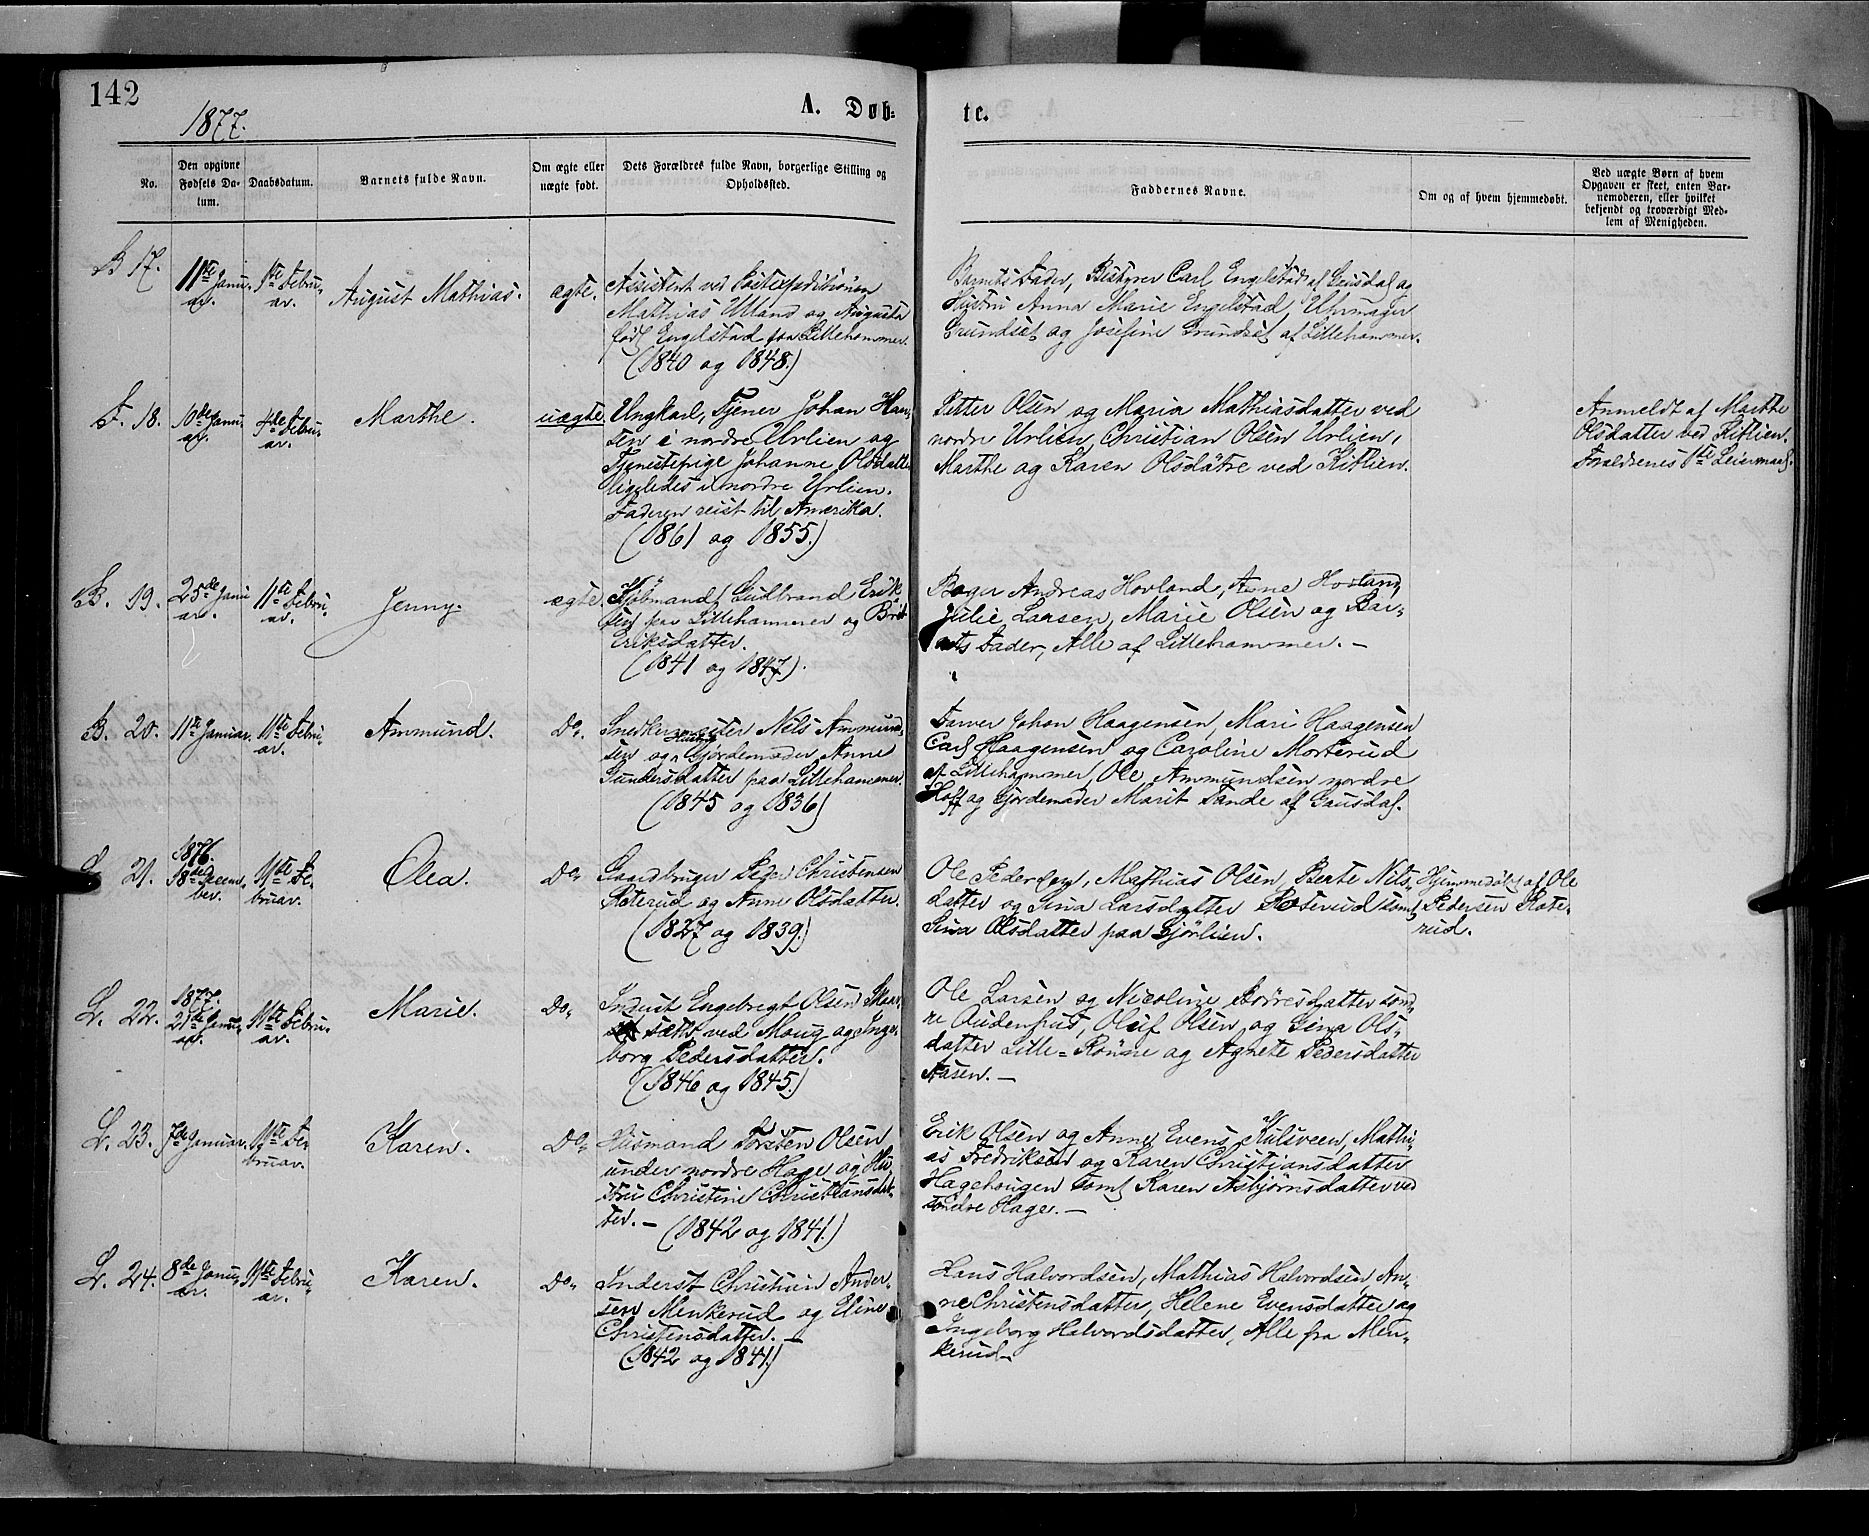 142
1877.
A. Døb-
te.
No.
Den opgivne
Fødsels Da-
tum.
Daabsdatum.
Barnets fulde Navn.
Om ægte eller
uægte født.
Dets Forældres fulde Navn, borgerlige Stilling og
Opholdssted.
Faddernes Navne.
Om og af hvem hjemmedøbt.
Ved uægte Børn af hvem
Opgaven er skeet, enten Bar-
nemoderen, eller hvilket
bekjendt og troværdigt Med-
lem af Menigheden.
B 17.
11te Janu-
ar.
1ste Febru-
ar.
August Mathias.
ægte.
Assistent ved Postexpeditionen
Mathias Ulland og Augusta
født Engelstad paa Lillehammer.
(1840 og 1848.)
Barnets Fader, Bestyrer Carl Engelstad af Gausdal og
Hustru Anna Marie Engelstad, Uhrmager
Grundset og Josefine Grundset af Lillehammer.
F. 18.
10de Janu-
ar.
4de Febru-
ar.
Marthe.
uægte.
Ungkarl, Tjener Johan Han-
sen i nordre Urlien og
Tjenestepige Johanne Olsdatter
ligeledes i nordre Urlien.
Faderen reist til Amerika.
(1861 og 1855.)
Petter Olsen og Maria Mathiasdatter ved
nordre Urlien, Christian Olsen Urlien,
Marthe og Karen Olsdøtre ved Kitlien.
Anmeldt af Marthe
Olsdatter ved Kitlien.
Forældrenes 1ste Leiermaal.
B. 19.
25de Janu-
ar.
11te Febru-
ar.
Jenny.
ægte.
Kjøbmand Gudbrand Erik-
sen paa Lillehammer og Brit
Eriksdatter.
(1841 og 1847).
Bager Andreas Hovland, Anne Hovland,
Julie Larsen, Marie Olsen og Bar-
nets Fader, Alle af Lillehammer. —
B. 20.
11te Januar.
11te Febru-
ar.
Ammund.
Do.
Snedkermester Nils Ammund-
sen og Hustru Gjordemoder Anne
Gundersdatter paa Lillehammer.
(1845 og 1836)
Farver Johan Haagensen, Mari Haagensen
Carl Haagensen og Caroline Morterud
af Lillehammer, Ole Ammundsen nordre
Hoff og Gjordemoder Marit Tande af Gausdal.
L. 21.
1876.
18de Decem-
ber.
11te Fe-
bruar.
Olea.
Do.
Gaardbruger Peder Christensen
Roterud og Anne Olsdatter.
(1827 og 1839)
Ole Pedersen, Mathias Olsen, Berte Nils-
datter og Sina Larsdatter Roterud samt
Sina Olsdatter paa Gjørlien.
Hjemmedøbt af Ole
Pedersen Rote-
rud.
L. 22.
1877.
21de Janu-
ar.
11te Febru-
ar.
Marie.
Do.
Inderst Engebregt Olsen
ved Moug og Inge-
borg Pedersdatter.
(1846 og 1845.)
Ole Larsen og Nicoline Boresdatter sønd-
re Audenhus, Oluf Olsen og Gina Ols-
datter Lille-Rønne og Agnete Pedersdatter
Aasen. —
L. 23.
7de Januar.
11te Fe-
bruar.
Karen.
Do.
Husmand Torsten Olsen
under nordre Hage og Hu-
stru Christine Christiansdat-
ter. — (1842 og 1841.)
Erik Olsen og Anne Evens Kulsveen, Mathi-
as Fredriksen og Karen Christiansdatter
Hagehougen samt Karen Asbjørnsdatter ved
søndre Hage. —
L. 24.
8de Janu-
ar.
11te Febru-
ar.
Karen.
Do.
Inderst Christian Ander-
sen Menkerud og Eline
Christensdatter. —
(1842 og 1841)
Hans Halvordsen, Mathias Halvordsen, An-
ne Christensdatter, Helene Evensdatter og
Ingeborg Halvordsdatter, Alle fra Men-
kerud. —